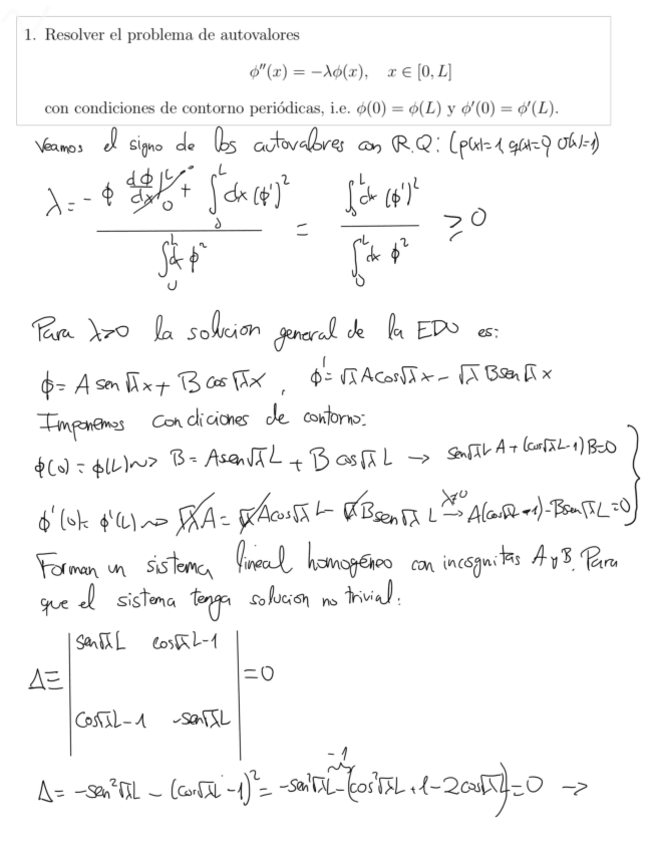 1. Resolver el problema de autovalores
φ''(x) = −λφ(x), x ∈ [0, L]
con condiciones de contorno periódicas, i.e. φ(0) = φ(L) y φ'(0) = φ'(L).
Veamos el signo de los autovalores con R.Q: (p(x)=1 q(x)=0 σ(x)=1)
λ = (-φ dφ/dx|₀ᴸ + ∫₀ᴸ dx (φ')²) / (∫₀ᴸ dx φ²) = (∫₀ᴸ dx (φ')²) / (∫₀ᴸ dx φ²) ≥ 0
Para λ>0 la solucion general de la EDO es:
φ = A sen√λx + B cos√λx, φ' = √λ A cos√λx − √λ B sen√λx
Imponemos condiciones de contorno:
φ(0) = φ(L) ⇝ B = A sen√λL + B cos√λL → sen√λL A + (cos√λL-1)B=0
φ'(0) = φ'(L) ⇝ √λA = √λA cos√λL − √λB sen√λL →(λ≠0) A(cos√λL-1) - B sen√λL = 0
Forman un sistema lineal homogéneo con incognitas A y B. Para
que el sistema tenga solucion no trivial:
sen√λL cos√λL-1
Δ≡ =0
cos√λL-1 -sen√λL
-1
Δ = -sen²√λL − (cos√λL-1)² = -sen²√λL − (cos²√λL+1-2cos√λL) = 0 →